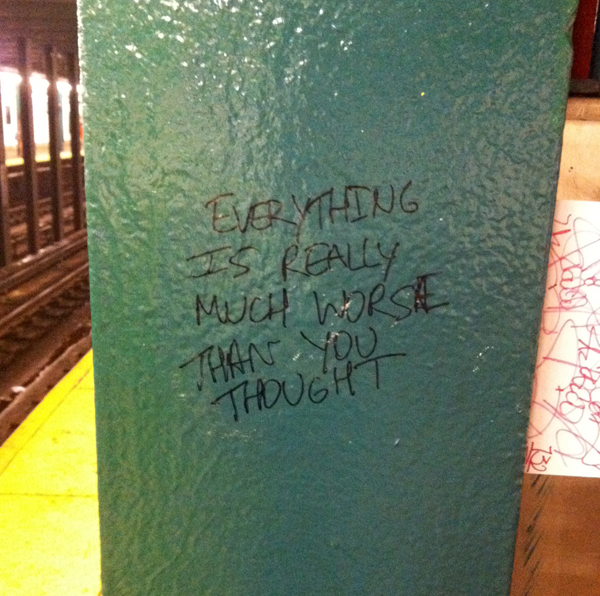 EVERYTHING
IS REALLY
MUCH WORSE
THAN YOU
THOUGHT